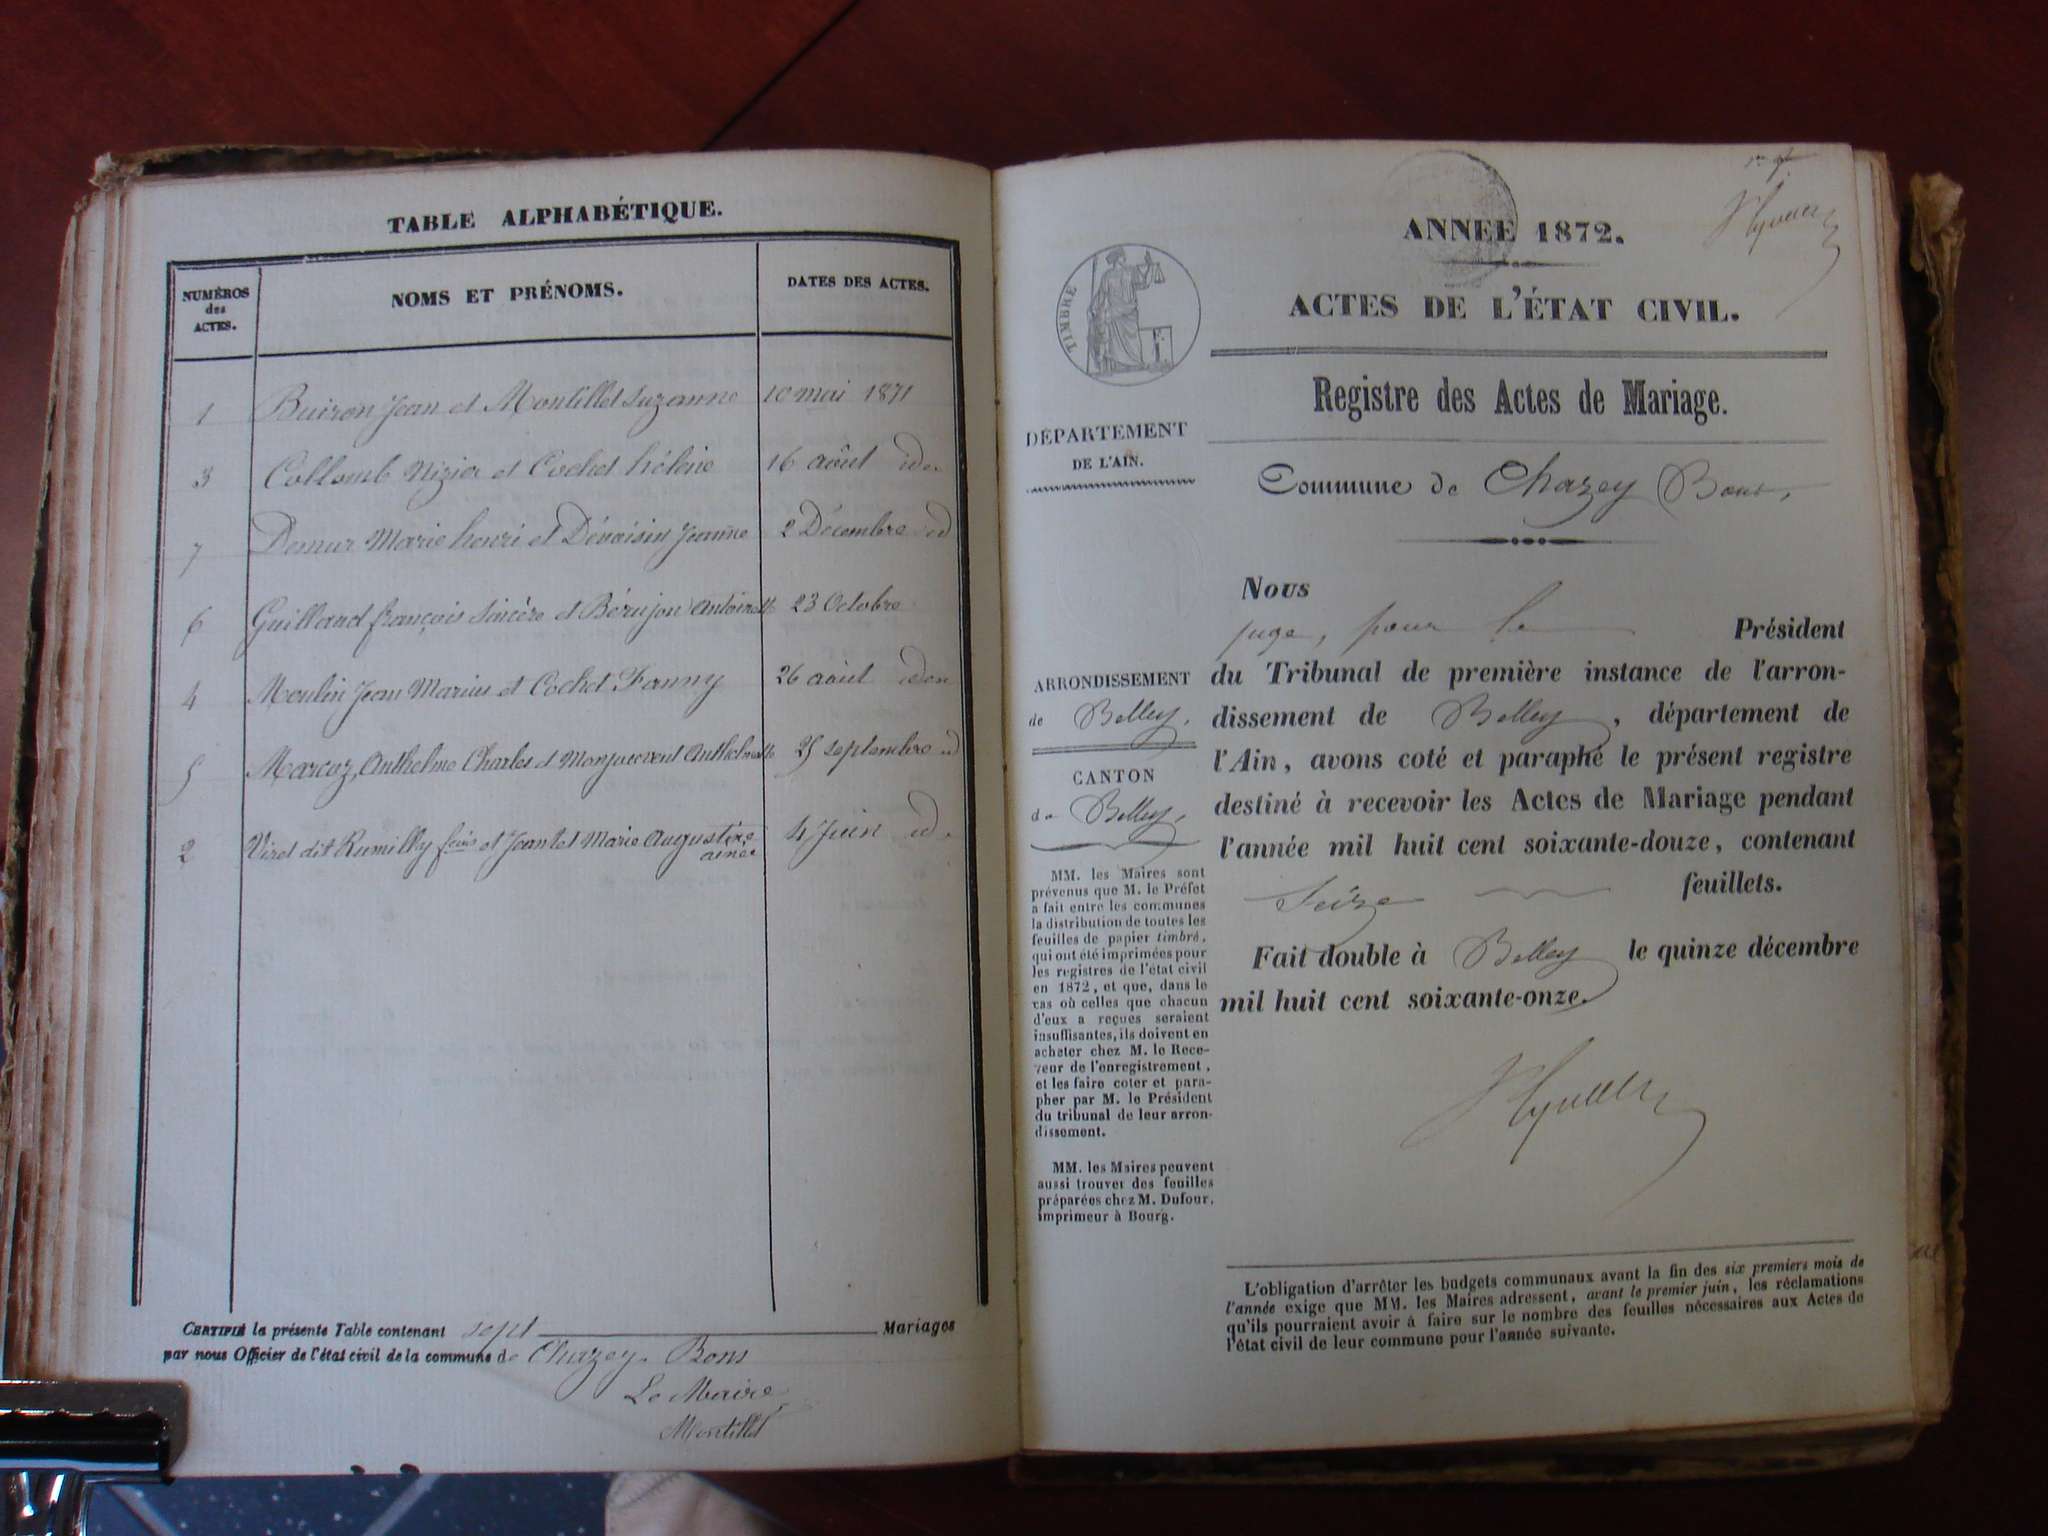 TABLE ALPHABÉTIQUE.
NUMÉROS des ACTES.
NOMS ET PRÉNOMS.
DATES DES ACTES.
1 Buiron Jean et Montillet Suzanne 10 mai 1871
3 Collomb Nizier et Cochet hélène 16 août idem
7 Demur Marie henri et Dévoisin Jeanne 2 Décembre id
6 Guilland françois Sincère et Bérujon Antoinette 23 Octobre
4 Moulin Jean Marius et Cochet Fanny 26 août idem
5 Marcoz, Anthelme Charles et Monjocvent Anthelmette 25 septembre id
2 Viret dit Rumilly fois et Jeantet Marie Augustine 4 Juin id.
ainée
CERTIFIÉ la présente Table contenant sept Mariages
par nous Officier de l'état civil de la commune de Chazey-Bons
Le Maire
Montillet
ANNEE 1872.
ACTES DE L'ÉTAT CIVIL.
TIMBRE
Registre des Actes de Mariage.
DÉPARTEMENT
DE L'AIN.
Commune de Chazey Bons,
ARRONDISSEMENT
de Belley,
CANTON
de Belley,
MM. les Maires sont
prévenus que M. le Préfet
a fait entre les communes
la distribution de toutes les
feuilles de papier timbré,
qui ont été imprimées pour
les registres de l'état civil
en 1872, et que, dans le
cas où celles que chacun
d'eux a reçues seraient
insuffisantes, ils doivent en
acheter chez M. le Rece-
veur de l'enregistrement,
et les faire coter et para-
pher par M. le Président
du tribunal de leur arron-
dissement.
MM. les Maires peuvent
aussi trouver des feuilles
préparées chez M. Dufour,
imprimeur à Bourg.
Nous
juge, pour le Président
du Tribunal de première instance de l'arron-
dissement de Belley, département de
l'Ain, avons coté et paraphé le présent registre
destiné à recevoir les Actes de Mariage pendant
l'année mil huit cent soixante-douze, contenant
Seize feuillets.
Fait double à Belley le quinze décembre
mil huit cent soixante-onze.
L'obligation d'arrêter les budgets communaux avant la fin des six premiers mois de
l'année exige que MM. les Maires adressent, avant le premier juin, les réclamations
qu'ils pourraient avoir à faire sur le nombre des feuilles nécessaires aux Actes de
l'état civil de leur commune pour l'année suivante.